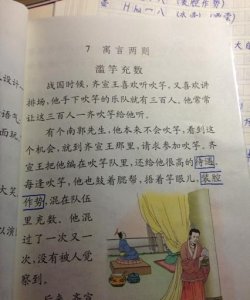 7 寓言两则
滥竽充数
战国时候，齐宣王喜欢听吹竽，又喜欢讲
排场，他手下吹竽的乐队就有三百人。他常常
让这三百人一齐吹竽给他听。
有个南郭先生，他本来不会吹竽，看到这
个机会，就到齐宣王那里，请求参加吹竽。齐
宣王把他编在吹竽队里，还给他很高的待遇。
每逢吹竽，他也鼓着腮帮，捂着竽眼儿，装腔
作势，混在队伍
里充数。他混
过了一次又一
次，没有被人觉
察到。
后来，齐宣